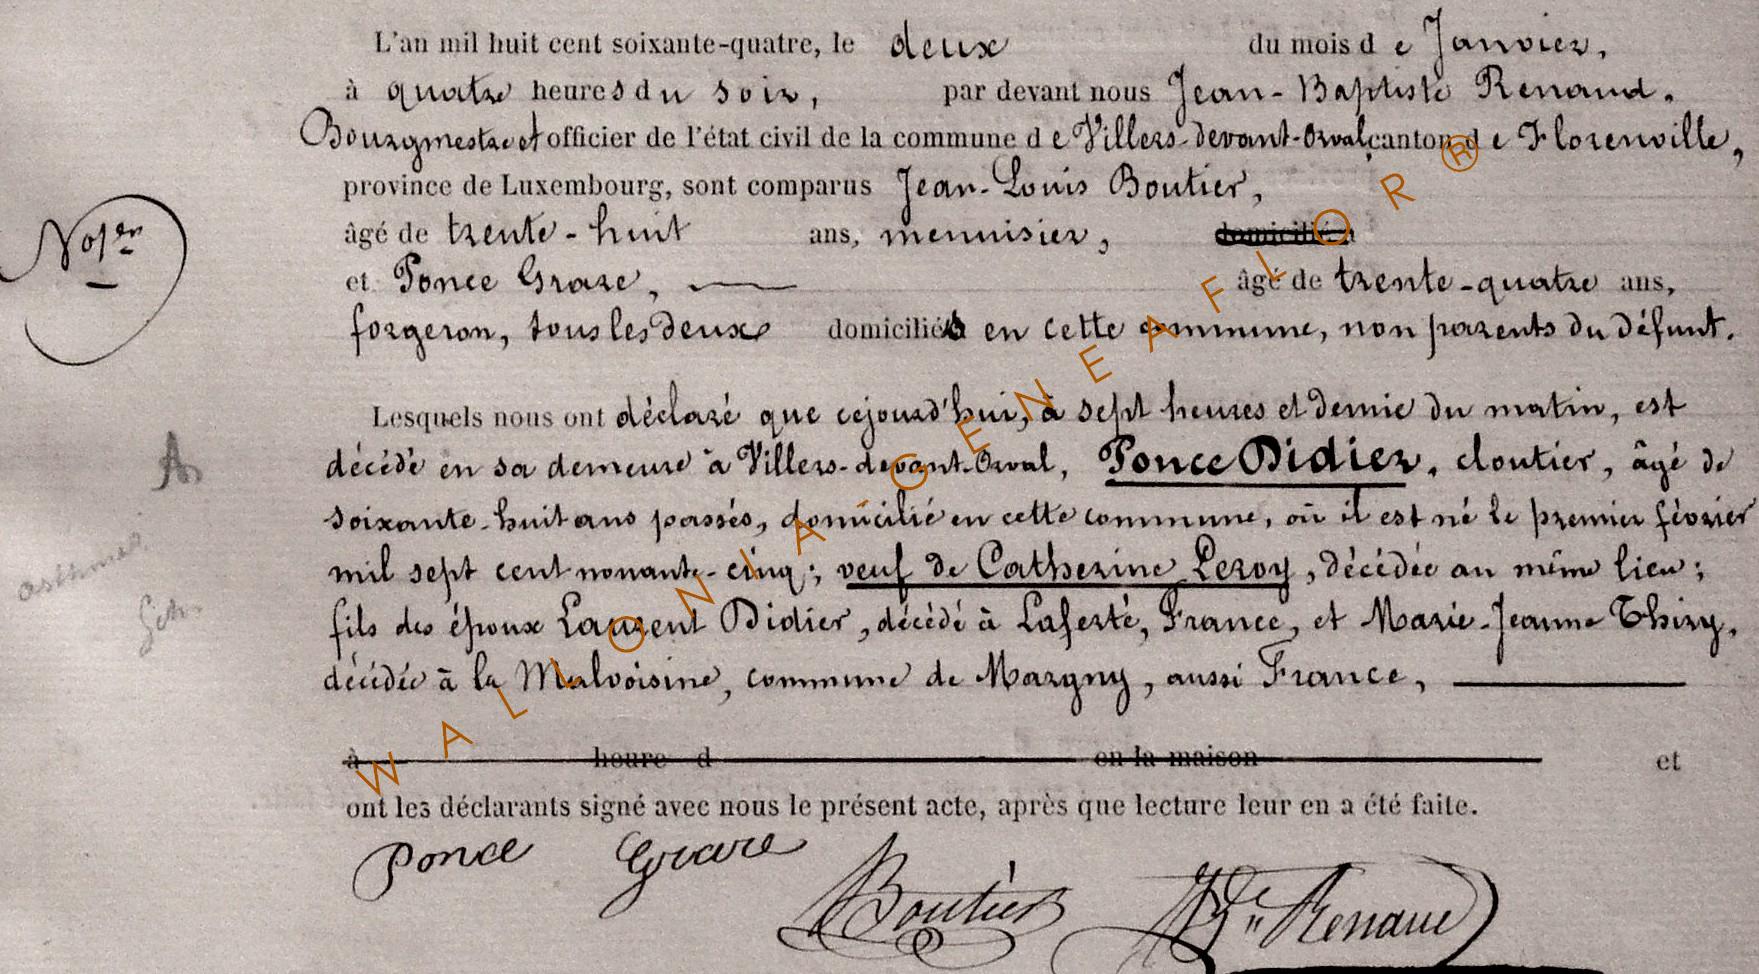 L'an mil huit cent soixante-quatre, le deux du mois d e Janvier,
à quatre heures du soir, par devant nous Jean-Baptiste Renaud,
Bourgmestre et officier de l'état civil de la commune d e Villers-devant-Orval, canton d e Florenville,
province de Luxembourg, sont comparus Jean-Louis Boutier,
No 1er
âgé de trente-huit ans, menuisier, domicilié à
et Ponce Grare, âgé de trente-quatre ans,
forgeron, tous les deux domiciliés en cette commune, non parents du défunt.
Lesquels nous ont déclaré que cejourd'hui, à sept heures et demie du matin, est
A
décédé en sa demeure à Villers-devant-Orval, Ponce Didier, cloutier, âgé de
soixante-huit ans passés, domicilié en cette commune, où il est né le premier février
mil sept cent nonante-cinq; veuf de Catherine Leroy, décédée au même lieu;
fils des époux Laurent Didier, décédé à Laferté, France, et Marie-Jeanne Thiry,
décédée à la Malvoisine, commune de Margny, aussi France,
à heure d en la maison et
ont les déclarants signé avec nous le présent acte, après que lecture leur en a été faite.
Ponce Grare
Boutier
Renaud
WALLONIA GENEAFLOR®